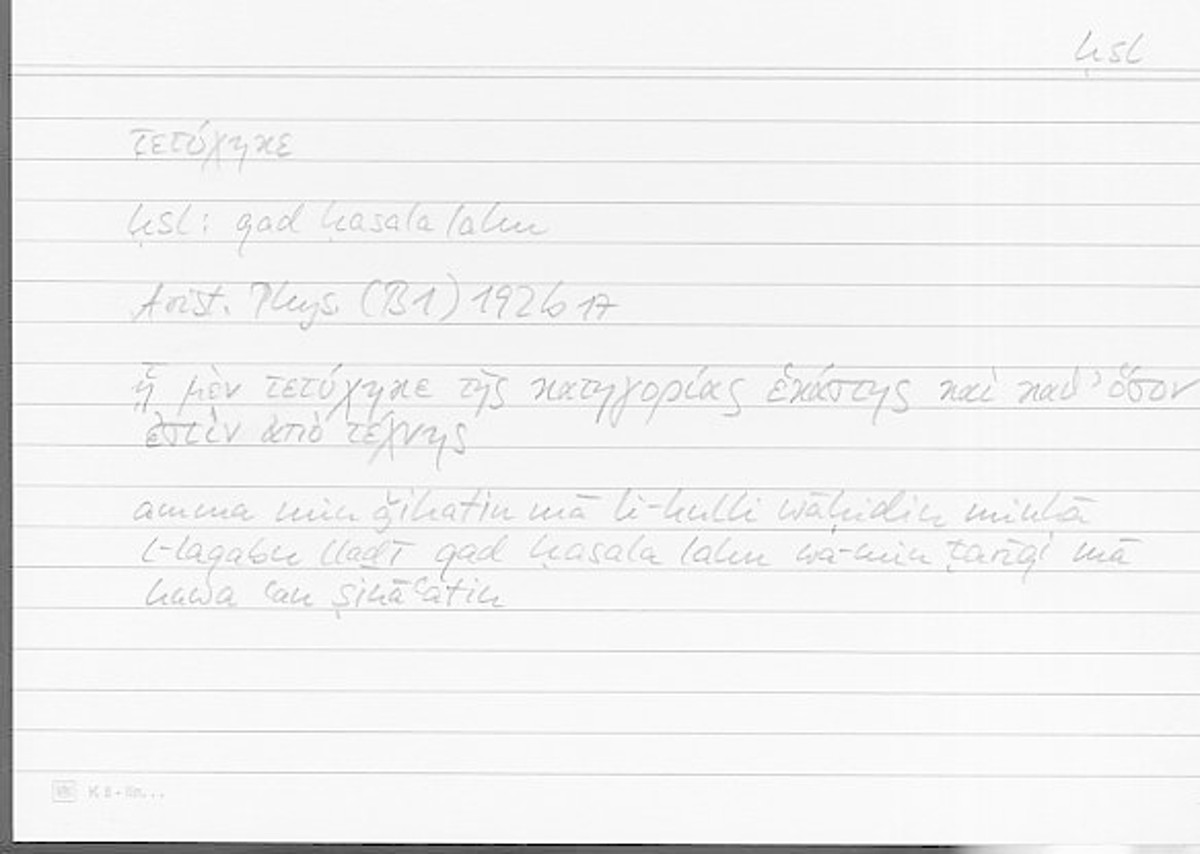 ḥsl
τετύχηκε
ḥsl: qad ḥasala lahu
Arist. Phys. (B1) 192b17
ᾗ μὲν τετύχηκε τῆς κατηγορίας ἑκάστης καὶ καθ' ὅσον
ἐστὶν ἀπὸ τέχνης
amma min ǧihatin mā li-kulli wāḥidin minhā
l-laqabu lladī qad ḥasala lahu wa-min ṭarīqi mā
huwa ʿan ṣināʿatin